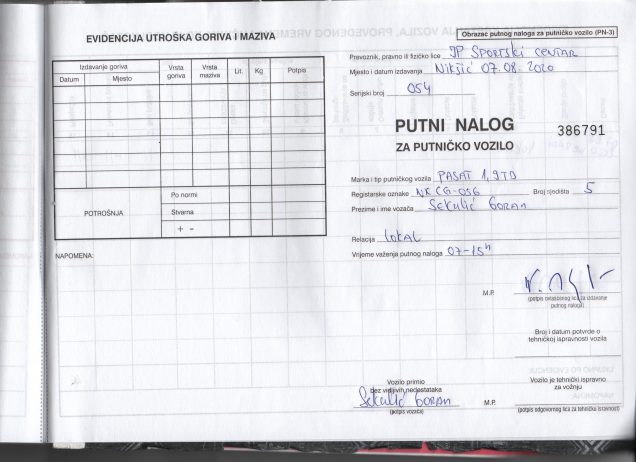 EVIDENCIJA UTROŠKA GORIVA I MAZIVA
Izdavanje goriva
Datum Mjesto Vrsta goriva Vrsta maziva Lit. Kg Potpis
POTROŠNJA
Po normi
Stvarna
+ -
NAPOMENA:
Obrazac putnog naloga za putničko vozilo (PN-3)
Prevoznik, pravno ili fizičko lice JP SPORTSKI CENTAR
Mjesto i datum izdavanja Nikšić 07.08.2020
Serijski broj 054
PUTNI NALOG
386791
ZA PUTNIČKO VOZILO
Marka i tip putničkog vozila PASAT 1,9TD
Registarske oznake NK CG-056 Broj sjedišta 5
Prezime i ime vozača Sekulić Goran
Relacija Lokal
Vrijeme važenja putnog naloga 07-15h
M.P.
(potpis ovlašćenog lica za izdavanje
putnog naloga)
Broj i datum potvrde o
tehničkoj ispravnosti vozila
Vozilo primio
bez vidljivih nedostataka
Sekulić Goran
(potpis vozača)
Vozilo je tehnički ispravno
za vožnju
M.P.
(potpis odgovornog lica za tehničku ispravnost)